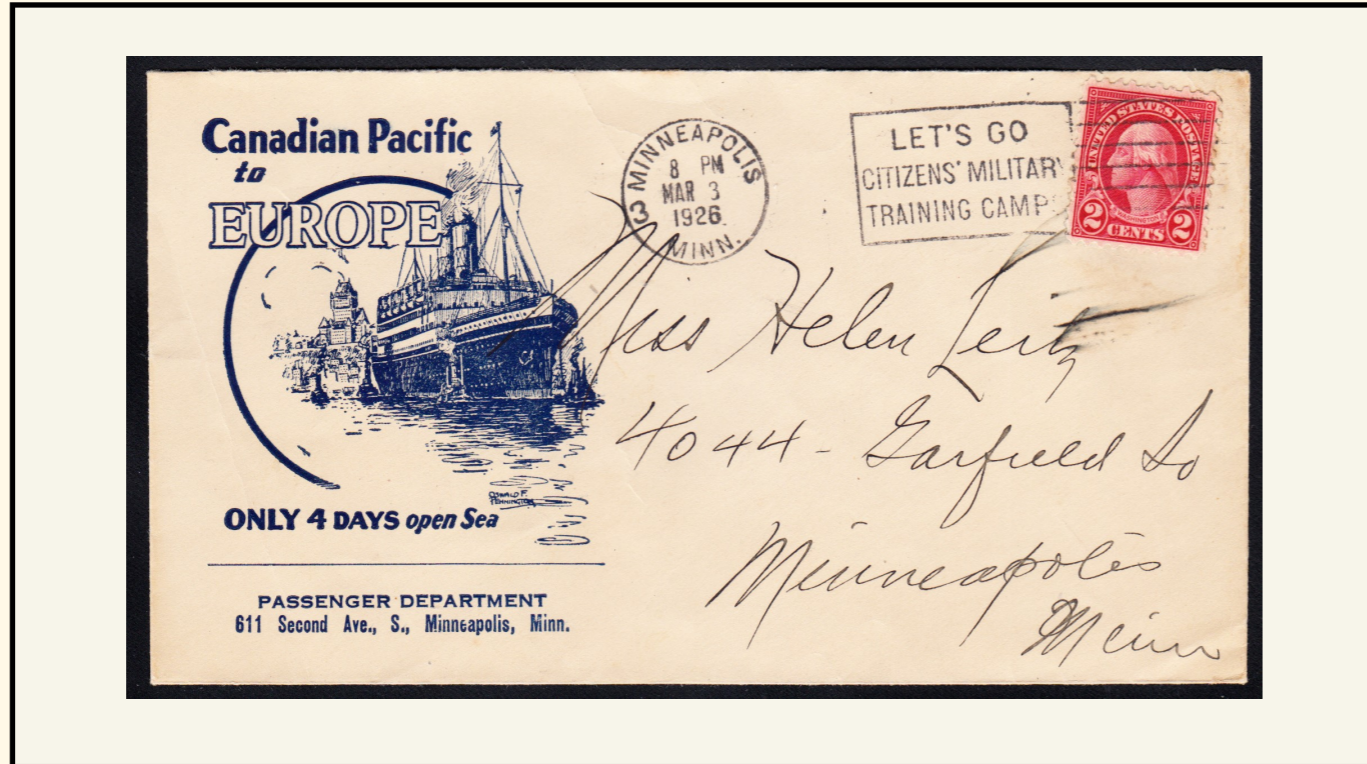 Canadian Pacific
to
EUROPE
OSWALD F.
PENNINGTON
ONLY 4 DAYS open Sea
PASSENGER DEPARTMENT
611 Second Ave., S., Minneapolis, Minn.
3 MINNEAPOLIS
8 PM
MAR 3
1926
MINN.
LET'S GO
CITIZENS' MILITARY
TRAINING CAMP
UNITED STATES POSTAGE
WASHINGTON
2 CENTS 2
Miss Helen Leitz
4044 - Garfield So
Minneapolis
Minn